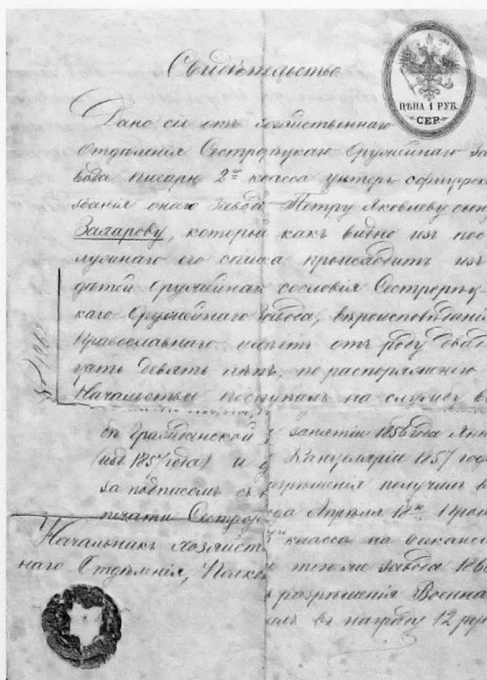 Свидѣтельство
ЦѢНА 1 РУБ.
СЕР
Дано сіе отъ хозяйственнаго
Отдѣленія Сестрорѣцкаго Оружейнаго За
вода писарю 2го класса унтеръ офицерск
званія онаго Завода Петру Яковлеву сыну
Захарову, который какъ видно изъ пос
лужнаго его списка происходитъ изъ
дѣтей Оружейнаго сословія Сестрорѣц
каго Оружейнаго Завода, вѣроисповѣданія
Православнаго имѣетъ отъ роду двад
цать девять лѣтъ, по распоряженію
Начальства поступилъ на службу в
Гражданской занятіи 1856 года Янв
1857 года) и Канцеляріи 1857 год
за подписомъ съ разрѣшенія получилъ в
печати Сестрор года Апрѣля
Начальникъ Хозяйст класса на ваканс
наго Отдѣленія, Полков завода 186
разрѣшенія Военна
въ награду 12 руб